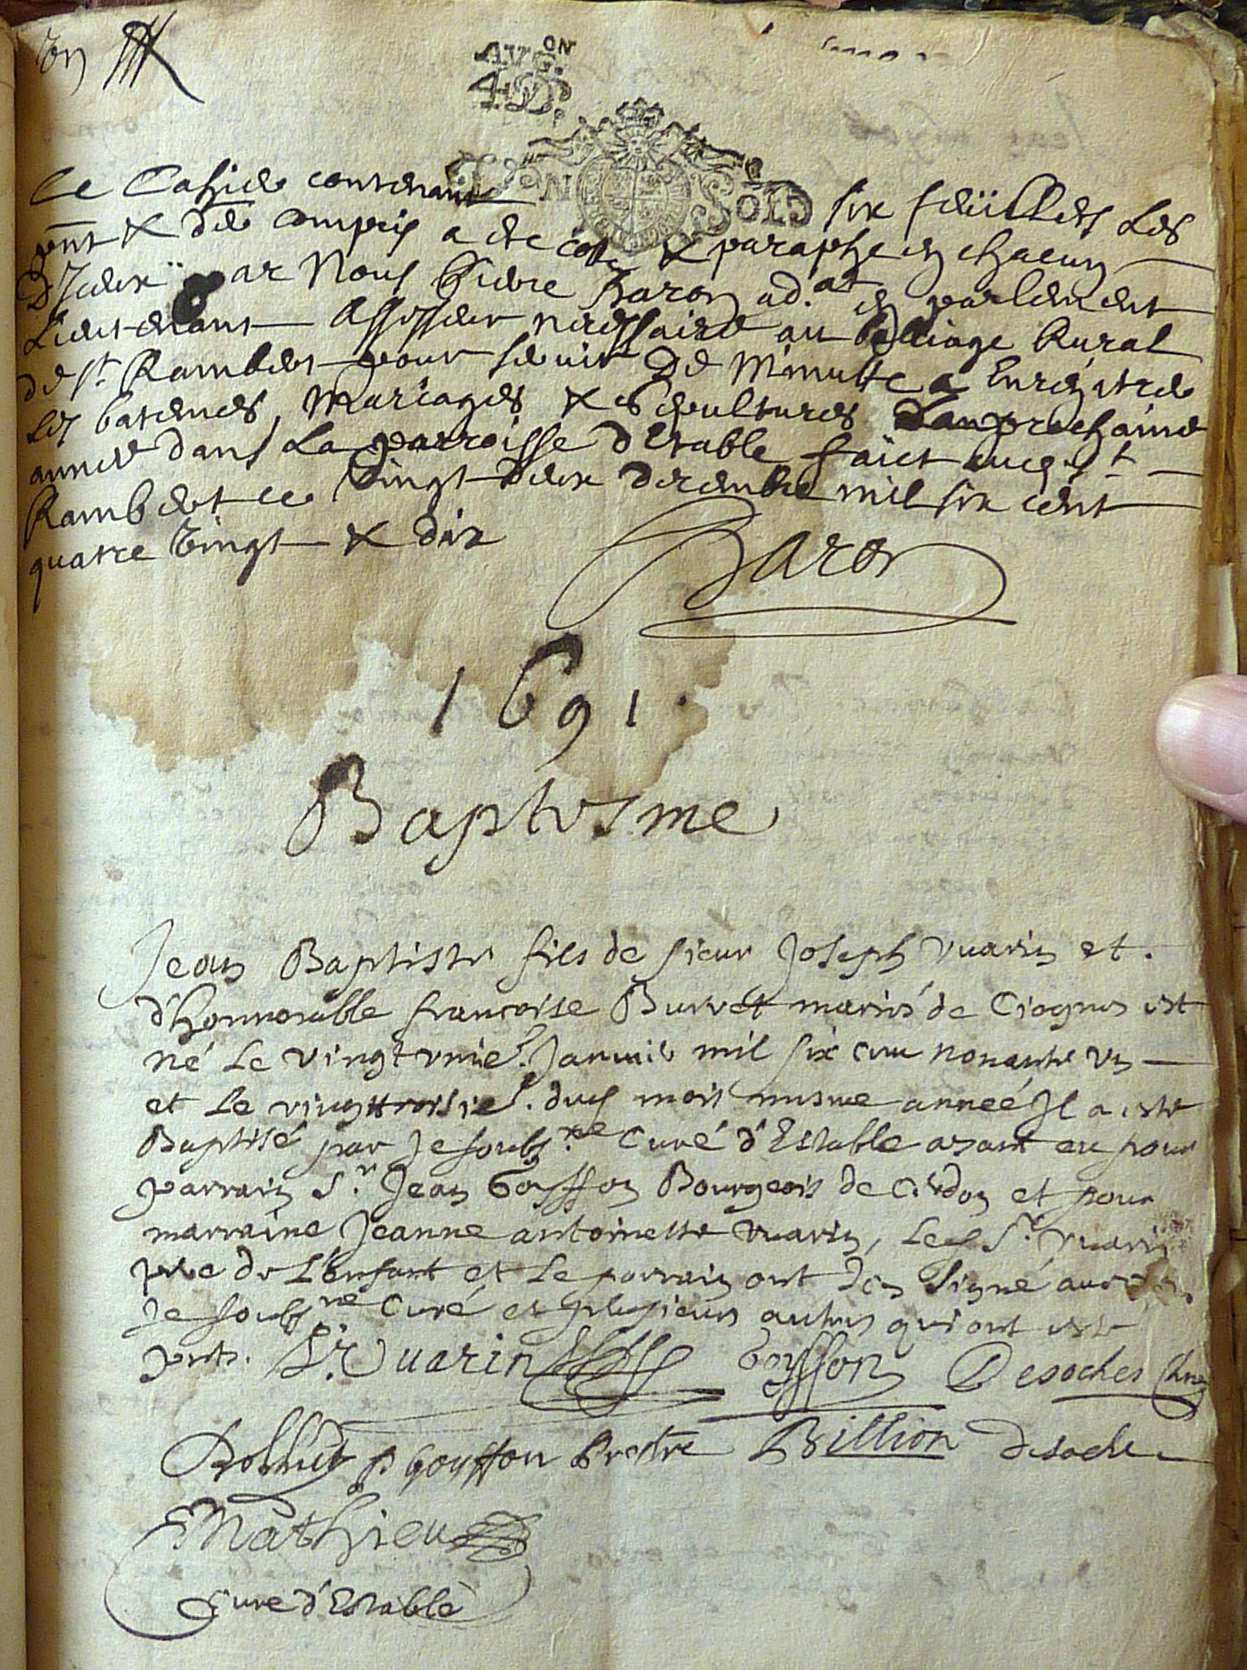 AVG.ON
4 D.
SOLS
Ce Cahier contenant six feuillets les
pnt & der compris a ete cotté & paraphé en chacun
D'Iceux par Nous Pierre Baron ad.at en parlement
Lieutenant Assesseur necessaire au balliage Rural
de st Rambert pour servir De Minutte a Enregitrer
les batemes, Mariages & Sepultures L'an prochaine
année dans La parroisse d'Etable faict audit st
Rambert ce vingt deux decembre mil six cent
quatre vingt & dix
Baron
1691.
Baptesme
Jean Baptiste fils de sieur Joseph Vuarin et
d'honnorable francoise Burret mariés de Ciognes est
né le vingt vnie. Janvier mil six cent nonante vn
et le vingt troisie. dud mois mesme année Il a esté
Baptisé par Je soubs.né Curé d'Estable ayant eu pour
parrain S.r Jean Goyffon Bourgeois de Cerdon et pour
marraine Jeanne antoinette Vuarin, led S.r Vuarin
pere de L'enfant et Le parrain ont signé
Je soubs.né Curé et plusieurs autres qui ont esté
pnts. Vuarin Goyffon Desoches
goyffon Prestre Billion desoche
Mathieu
Curé d'Estable